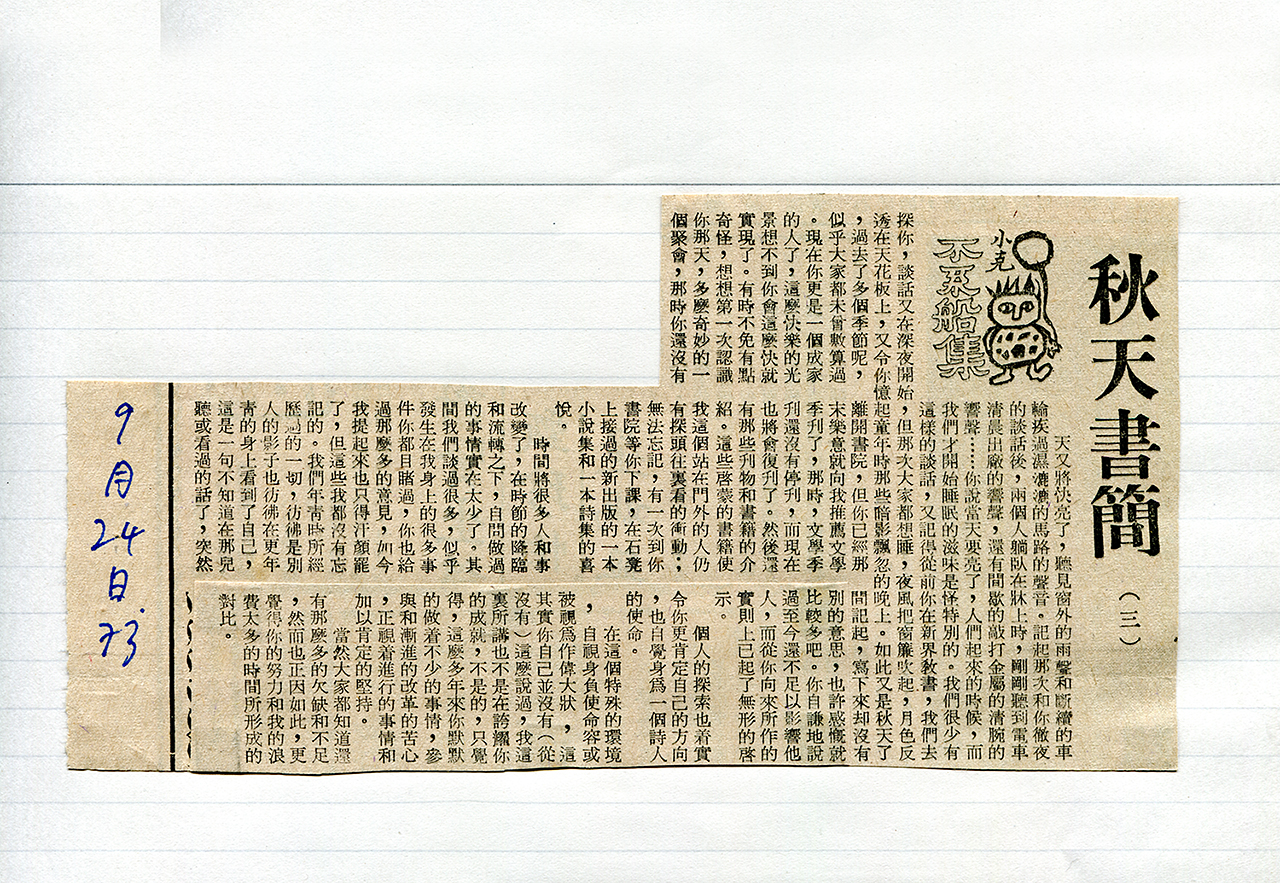 秋天書簡
（三）
小克
不系船集
天又將快亮了，聽見窗外的雨聲和斷續的車
輪疾過濕漉漉的馬路的聲音。記起那次和你徹夜
的談話後，兩個人躺臥在牀上時，剛剛聽到電車
清晨出廠的響聲，還有間歇的敲打金屬的清腕的
響聲……你說當天要亮了，人們起來的時候，而
我們才開始睡眠的滋味是怪特別的。我們很少有
這樣的談話，又記得從前你在新界敎書，我們去
探你，談話又在深夜開始，但那次大家都想睡，夜風把窗簾吹起，月色反
透在天花板上，又令你憶起童年時那些暗影飄忽的晚上。如此又是秋天了
，過去了多個季節呢，
似乎大家都未曾數算過
。現在你更是一個成家
的人了，這麽快樂的光
景想不到你會這麽快就
實現了。有時不免有點
奇怪，想想第一次認識
你那天，多麽奇妙的一
個聚會，那時你還沒有
離開書院，但你已經那
末樂意就向我推薦文學
季刊了，那時，文學季
刊還沒有停刊，而現在
也將會復刊了。然後還
有那些刊物和書籍的介
紹。這些啓蒙的書籍使
我這個站在門外的人仍
有探頭往裏看的衝動；
無法忘記，有一次到你
書院等你下課，在石凳
上接過的新出版的一本
小說集和一本詩集的喜
悅。
時間將很多人和事
改變了，在時節的降臨
和流轉之下，自問做過
的事情實在太少了。其
間我們談過很多，似乎
發生在我身上的很多事
件你都目睹過，你也給
過那麽多的意見，如今
我提起來也只得汗顏罷
了，但這些我都沒有忘
記的。我們年靑時所經
歷過的一切，彷彿是別
人的影子也彷彿在更年
靑的身上看到了自己，
這是一句不知道在那兒
聽或看過的話了，突然
間記起，寫下來却沒有
別的意思，也許感慨就
比較多吧。你自謙地說
過至今還不足以影響他
人，而從你向來所作的
實則上已起了無形的啓
示。
個人的探索也着實
令你更肯定自己的方向
，也自覺身爲一個詩人
的使命。
在這個特殊的環境
，自視身負使命容或
被視爲作偉大狀，這
其實你自己並沒有（從
沒有）這麽說過，我這
裏所講也不是在誇耀你
的成就，不是的，只覺
得，這麽多年來你默默
的做着不少的事情，參
與和漸進的改革的苦心
，正視着進行的事情和
加以肯定的堅持。
當然大家都知道還
有那麽多的欠缺和不足
，然而也正因如此，更
覺得你的努力和我的浪
費太多的時間所形成的
對比。
9月24日.73